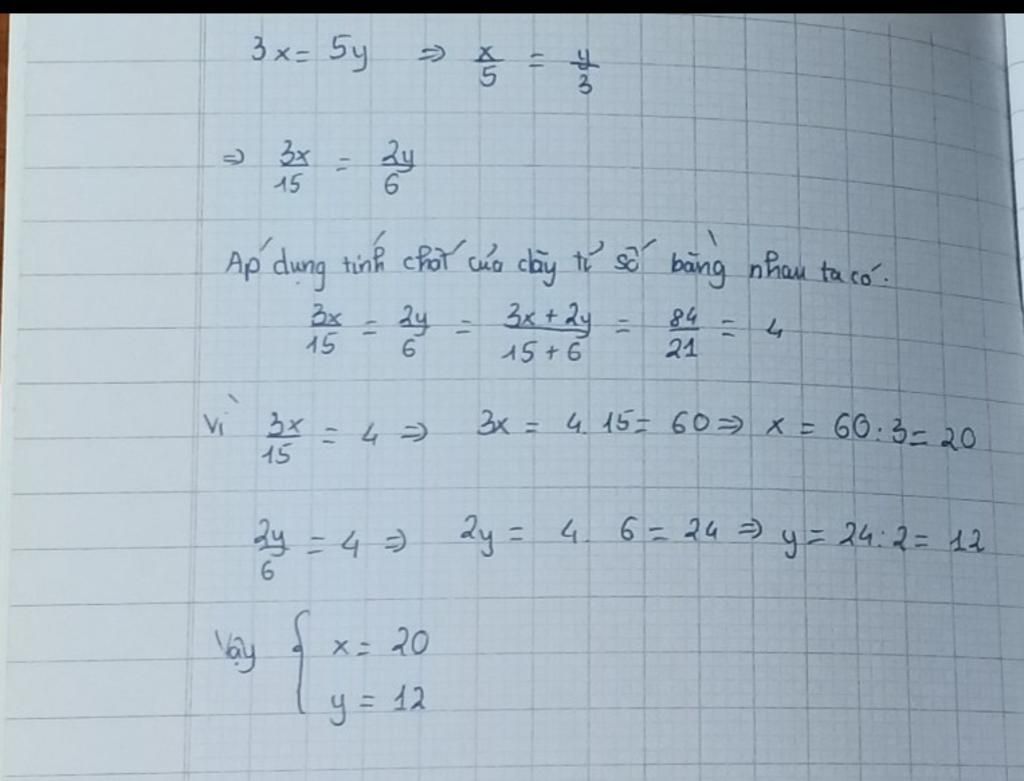 3x = 5y ⇒ x/5 = y/3
⇒ 3x/15 = 2y/6
Áp dụng tính chất của dãy tỉ số bằng nhau ta có:
3x/15 = 2y/6 = 3x + 2y/15 + 6 = 84/21 = 4
Vì 3x/15 = 4 ⇒ 3x = 4.15 = 60 ⇒ x = 60:3 = 20
2y/6 = 4 ⇒ 2y = 4.6 = 24 ⇒ y = 24:2 = 12
Vậy { x = 20
y = 12